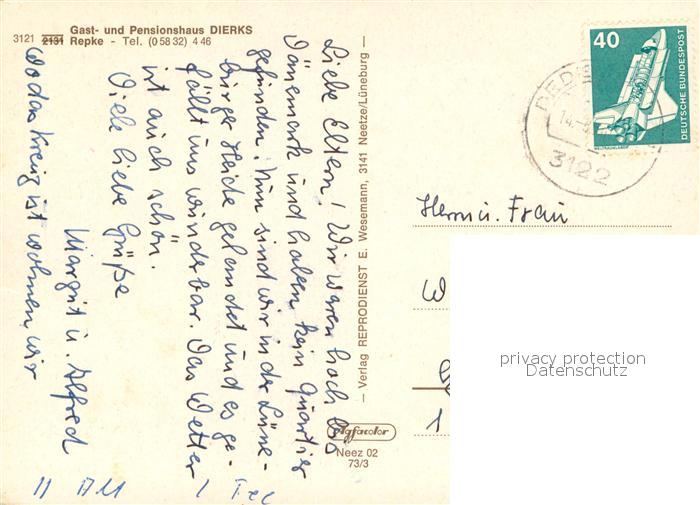 Gast- und Pensionshaus DIERKS
3121 2131 Repke - Tel. (0 58 32) 4 46
Liebe Eltern! Wir waren hoch bis
Dänemark und haben kein Quartier
gefunden. Nun sind wir in der Lüne-
burger Heide gelandet und es ge-
fällt uns wunderbar. Das Wetter
ist auch schön.
Viele liebe Grüße
Margrit u. Alfred
Wo das Kreuz ist wohnen wir
— Verlag REPRODIENST E. Wesemann, 3141 Neetze/Lüneburg —
Agfacolor
Neez 02
73/3
40
DEUTSCHE BUNDESPOST
3122
Herrn u. Frau
W
1
privacy protection
Datenschutz